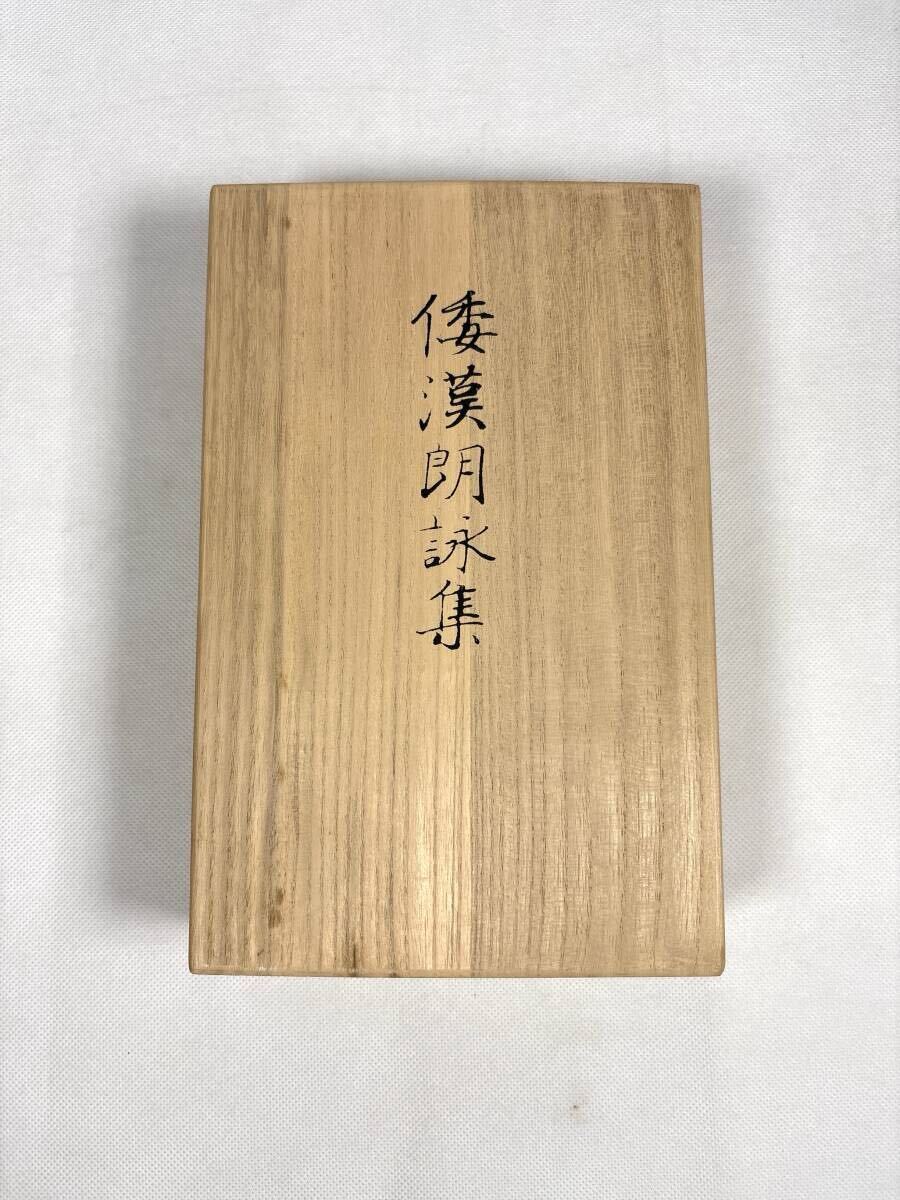 倭漢朗詠集